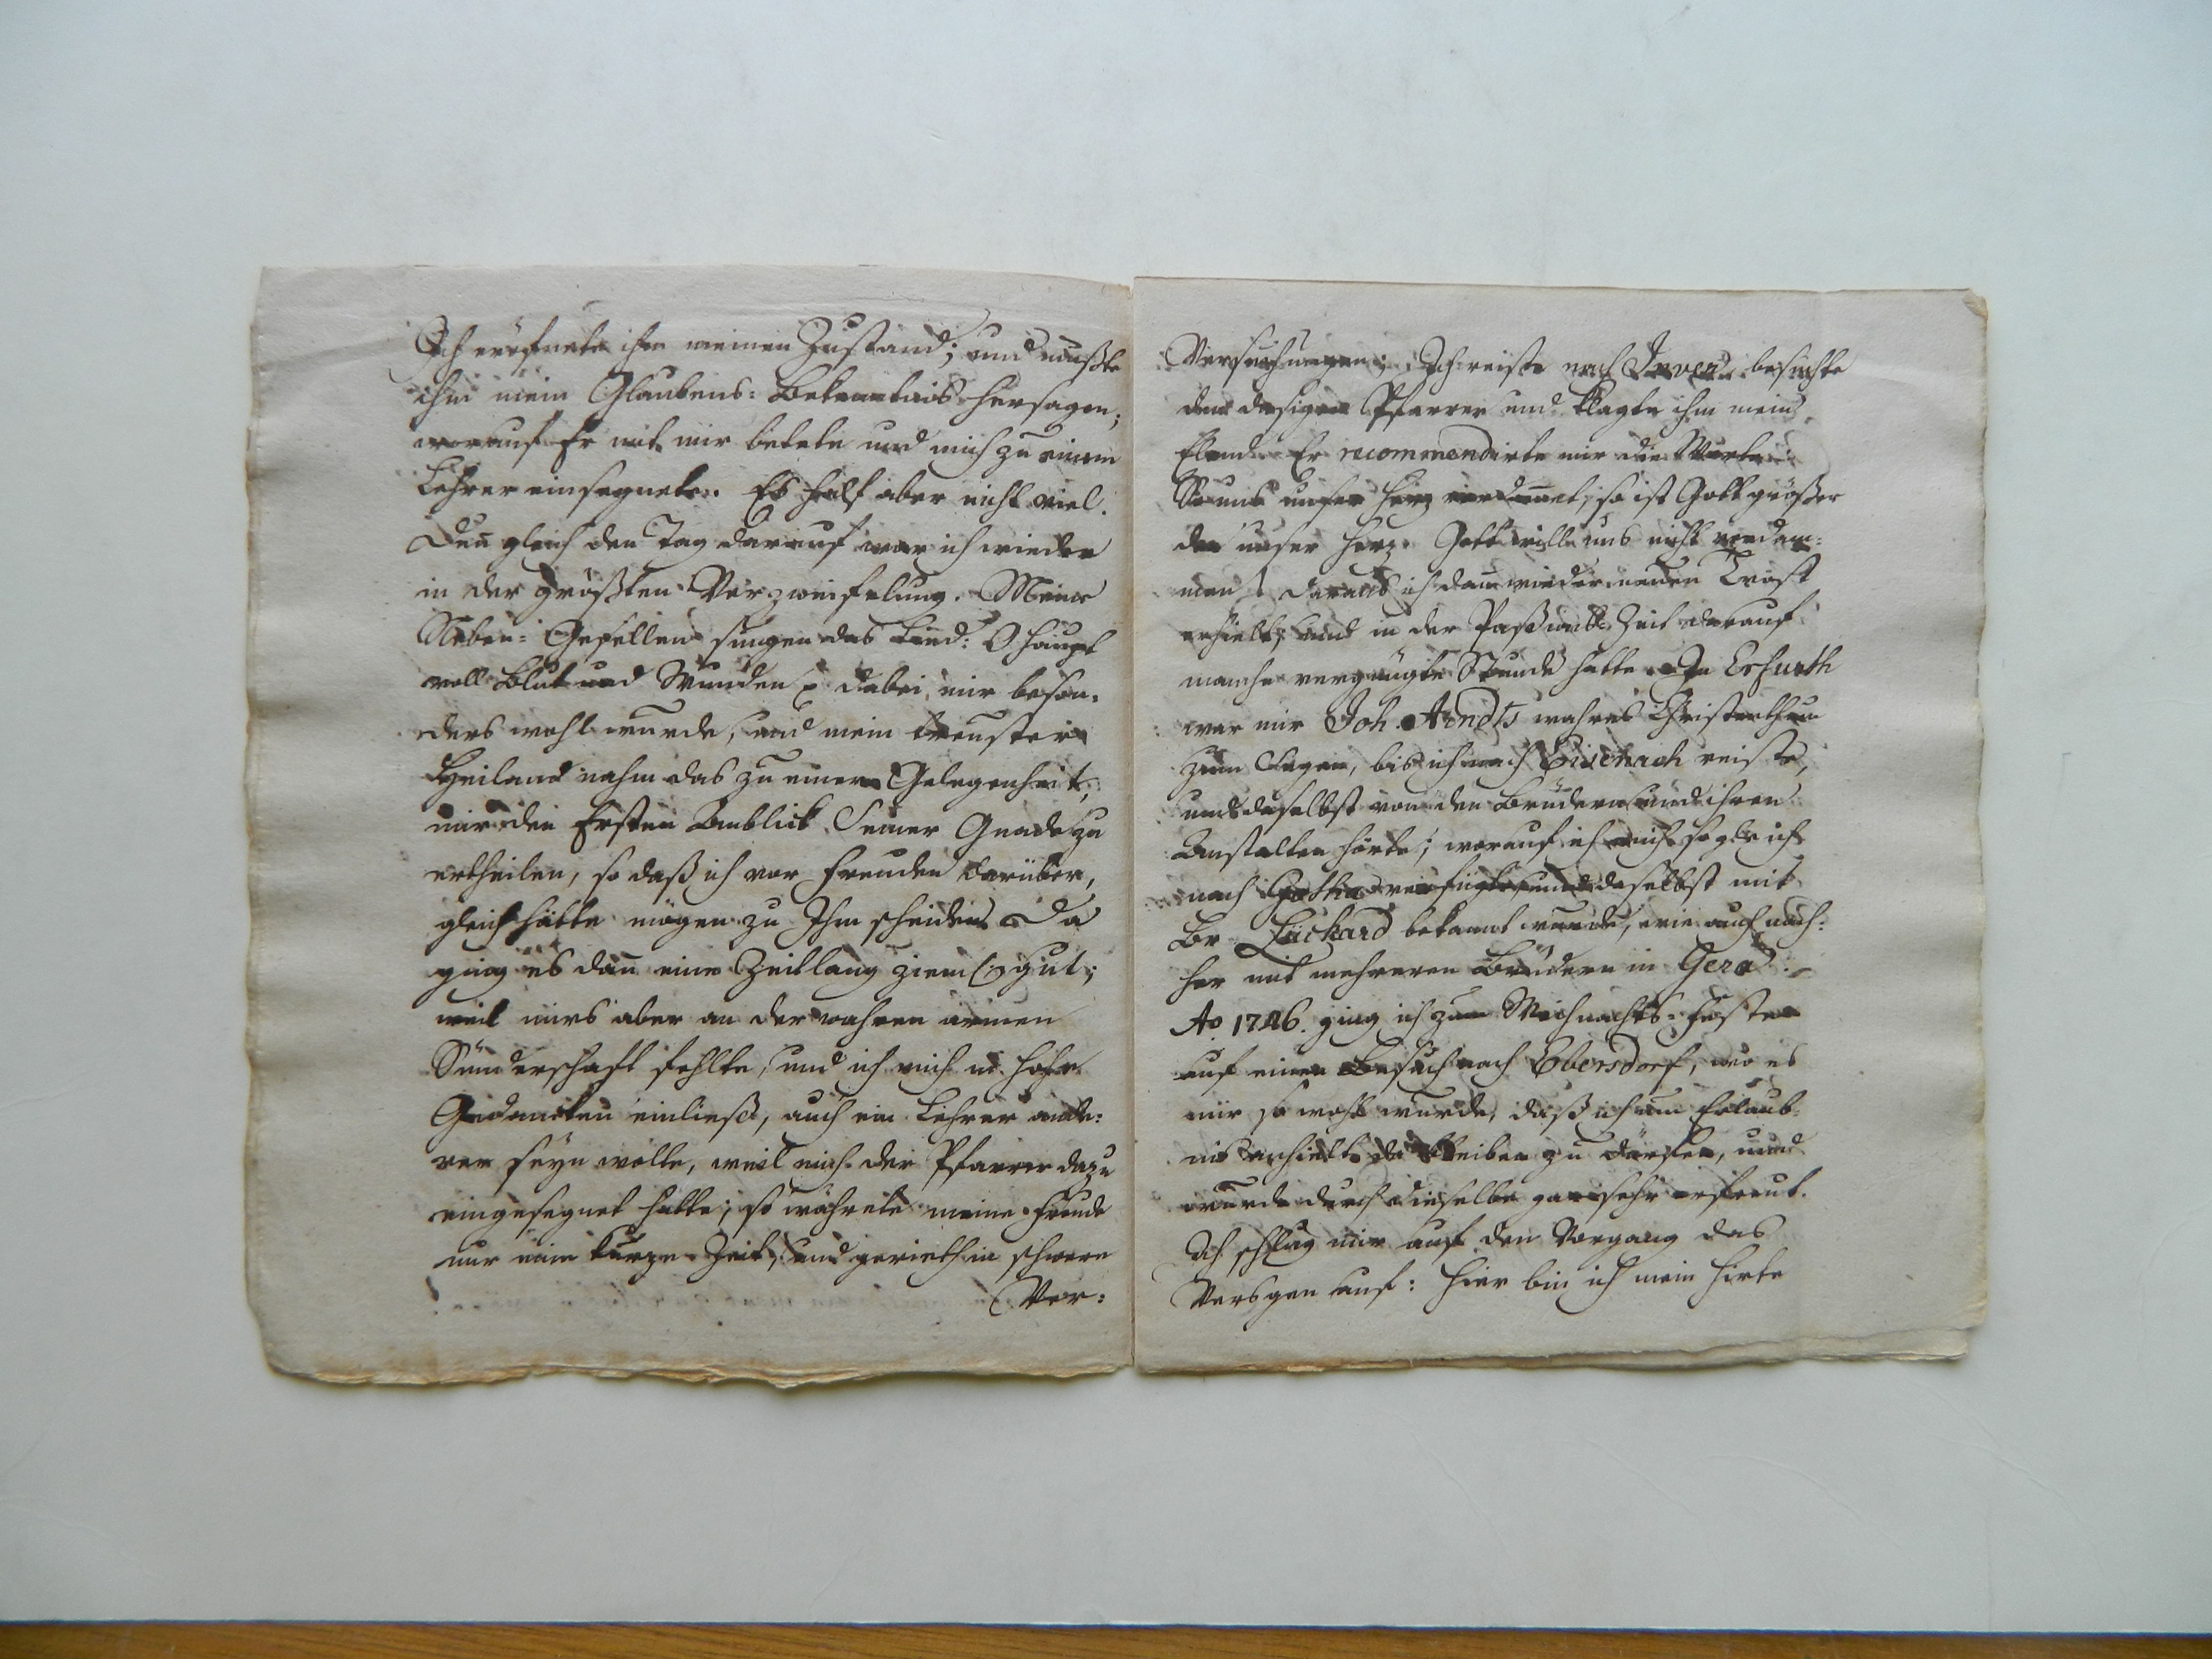 Ich eröfnete ihm meinen Zustand; und mußte
ihm mein Glaubens-Bekenntnis hersagen;
worauf Er mit mir betete und mich zu einem
Lehrer einsegnete. Es half aber nicht viel.
Den gleich den Tag darauf war ich wieder
in der größten Verzweifelung. Meine
Neben-Gesellen sungen das Lied: O Haupt
voll Blut und Wunden p dabei mir beson-
ders wohl wurde, und mein treuster
Heiland nahm das zu einer Gelegenheit,
mir den Ersten Anblick Seiner Gnade zu
ertheilen, so daß ich vor Freuden darüber,
gleich hätte mögen zu Ihm scheiden. Da
ging es dan eine Zeitlang ziemlich gut;
weil mirs aber an der wahren armen
Sünderschaft fehlte, und ich mich in hohe
Gedancken einließ, auch ein Lehrer ande-
rer seyn wolte, weil mich der Pfarrer dazu
eingesegnet hatte; so währete meine Freude
nur eine kurze Zeit, und gerieth in schwere
Ver-
Versuchungen. Ich reiste nach Jever besuchte
den dasigen Pfarrer und klagte ihm mein
Elend. Er recommendirte mir die Worte:
So uns unser Herz verdamt, so ist Gott größer
den unser Herz. Gott will uns nicht verdam-
men daraus ich dan wieder neuen Trost
erhielt, und in der Paßions Zeit darauf
manche vergnügte Stunde hatte. In Erfurth
war mir Joh. Arndts wahres Christenthum
zum Segen, bis ich nach Eisenach reiste,
und daselbst von den Brüdern und ihren
Anstalten hörte; worauf ich mich sogleich
nach Gotha verfügte und daselbst mit
Br. Lückard bekannt wurde, wie auch nach-
her mit mehreren Brüdern in Gera.
Ao 1746. ging ich zum Weihnachts-Feste
auf einen Besuch nach Ebersdorf, wo es
mir so wohl wurde, daß ich um Erlaub-
nis anhielt da bleiben zu dürfen, und
wurde durch dieselbe gar sehr erfreut.
Ich schlug mir auf den Vorgang das
Versgen auf: Hier bin ich mein Hirte